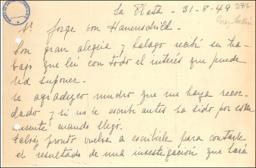 La Plata - 31-8-49
Sr. Jorge von Hauenschild.
Con gran alegria y halago recibí su tra-
bajo que leí con todo el interés que puede
Ud. suponer.
Le agradezco mucho que me haya recor-
dado y si no le escribí antes ha sido por estar
ausente cuando llegó.
pronto vuelva a escribirle para contarle
el resultado de una investigación que hará